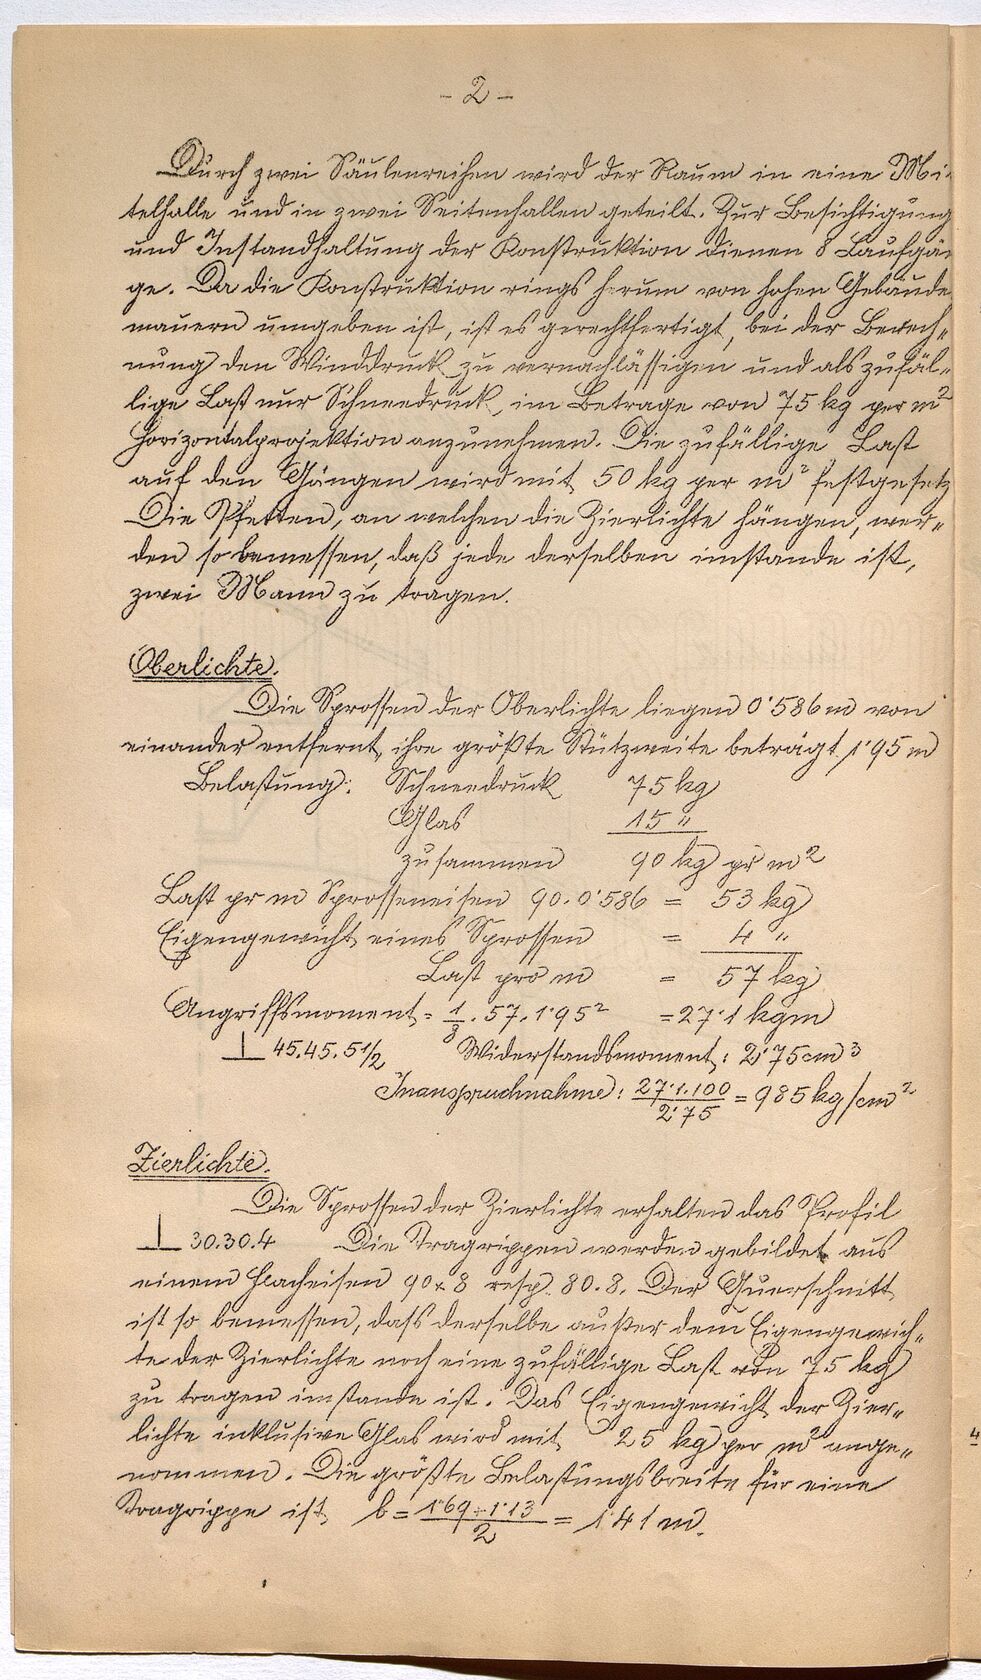 - 2 -
Durch zwei Säulenreihen wird der Raum in eine Mi-
telhalle und in zwei Seitenhallen geteilt. Zur Besichtigung
und Instandhaltung der Konstruktion dienen 8 Laufgän
ge. Da die Konstruktion rings herum von hohen Gebäude
mauern umgeben ist, ist es gerechtfertigt, bei der Berech-
nung den Winddruck zu vernachlässigen und als zufäl-
lige Last nur Schneedruck im Betrage von 75 kg per m²
Horizontalprojektion anzunehmen. Die zufällige Last
auf den Gängen wird mit 50 kg per m² festgesetz
Die Pfetten, an welchen die Zierlichte hängen, wer-
den so bemessen, daß jede derselben imstande ist,
zwei Mann zu tragen.
Oberlichte.
Die Sprossen der Oberlichte liegen 0'586 m von
einander entfernt, ihre größte Stützweite beträgt 1'95 m
Belastung: Schneedruck 75 kg
Glas 15 "
zusammen 90 kg pr m²
Last pr m Sprosseneisen 90.0'586 = 53 kg
Eigengewicht eines Sprossen = 4 "
Last pro m = 57 kg
Angriffsmoment = 1/8 . 57 . 1'95² = 27'1 kgm
⊥ 45.45.5 1/2 Widerstandsmoment: 2'75 cm³
Inanspruchnahme: 27'1.100/2'75 = 985 kg/cm²
Zierlichte.
Die Sprossen der Zierlichte erhalten das Profil
⊥ 30.30.4 Die Tragrippen werden gebildet aus
einem Flacheisen 90 x 8 resp. 80.8. Der Querschnitt
ist so bemessen, dass derselbe außer dem Eigengewich-
te der Zierlichte noch eine zufällige Last von 75 kg
zu tragen imstande ist. Das Eigengewicht der Zier-
lichte inklusive Glas wird mit 25 kg per m² ange-
nommen. Die größte Belastungsbreite für eine
Tragrippe ist b = 1'69 + 1'13/2 = 1'41 m.